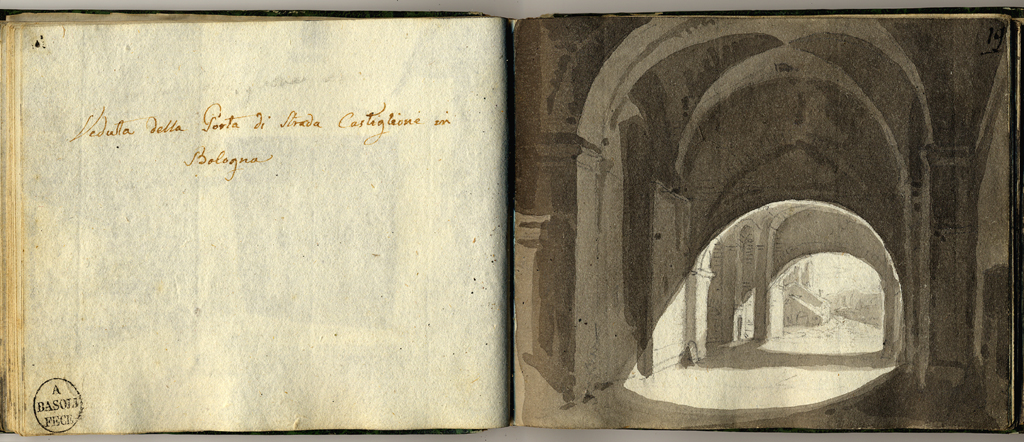 Veduta della Porta di Strada Castiglione in
Bologna
A
BASOLI
FECE
19